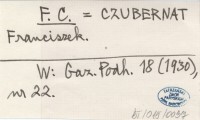 F. C. = CZUBERNAT
Franciszek.
W: Gaz. Podh. 18 (1930),
nr 22.